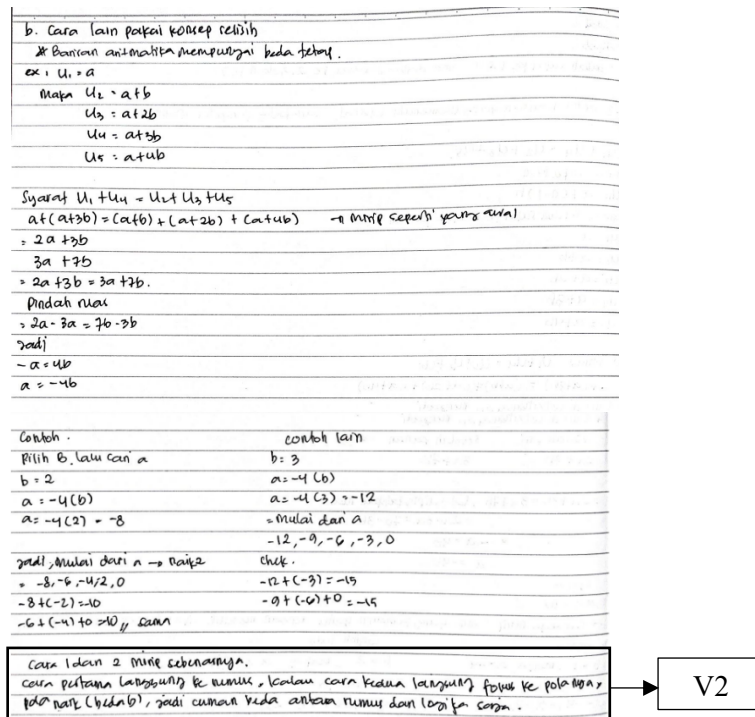 b. Cara lain pakai konsep selisih
* Barisan aritmatika mempunyai beda tetap.
ex : U₁ = a
Maka U₂ = a+b
U₃ = a+2b
U₄ = a+3b
U₅ = a+4b
Syarat U₁ + U₄ = U₂ + U₃ + U₅
a+(a+3b) = (a+b) + (a+2b) + (a+4b) → mirip seperti yang awal
= 2a + 3b
3a + 7b
= 2a + 3b = 3a + 7b.
Pindah ruas
= 2a - 3a = 7b - 3b
Jadi
-a = 4b
a = -4b
Contoh .
Pilih B, lalu cari a
b = 2
a = -4(b)
a = -4(2) = -8
Jadi, mulai dari a → naik 2
= -8, -6, -4, -2, 0
-8 + (-2) = -10
-6 + (-4) + 0 = -10 // sama
contoh lain
b = 3
a = -4 (b)
a = -4 (3) = -12
= mulai dari a
-12, -9, -6, -3, 0
chek.
-12 + (-3) = -15
-9 + (-6) + 0 = -15
Cara 1 dan 2 mirip sebenarnya.
Cara pertama langsung ke rumus, kalau cara kedua langsung fokus ke polanya,
pola naik (beda b), jadi cuman beda antara rumus dan logika saja.
V2